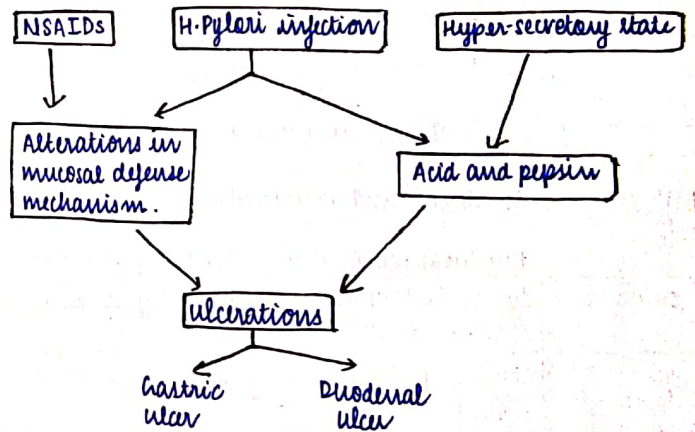 NSAIDs
H. Pylori infection
Hyper-secretory state
Alterations in
mucosal defense
mechanism.
Acid and pepsin
Ulcerations
Gastric
ulcer
Duodenal
ulcer